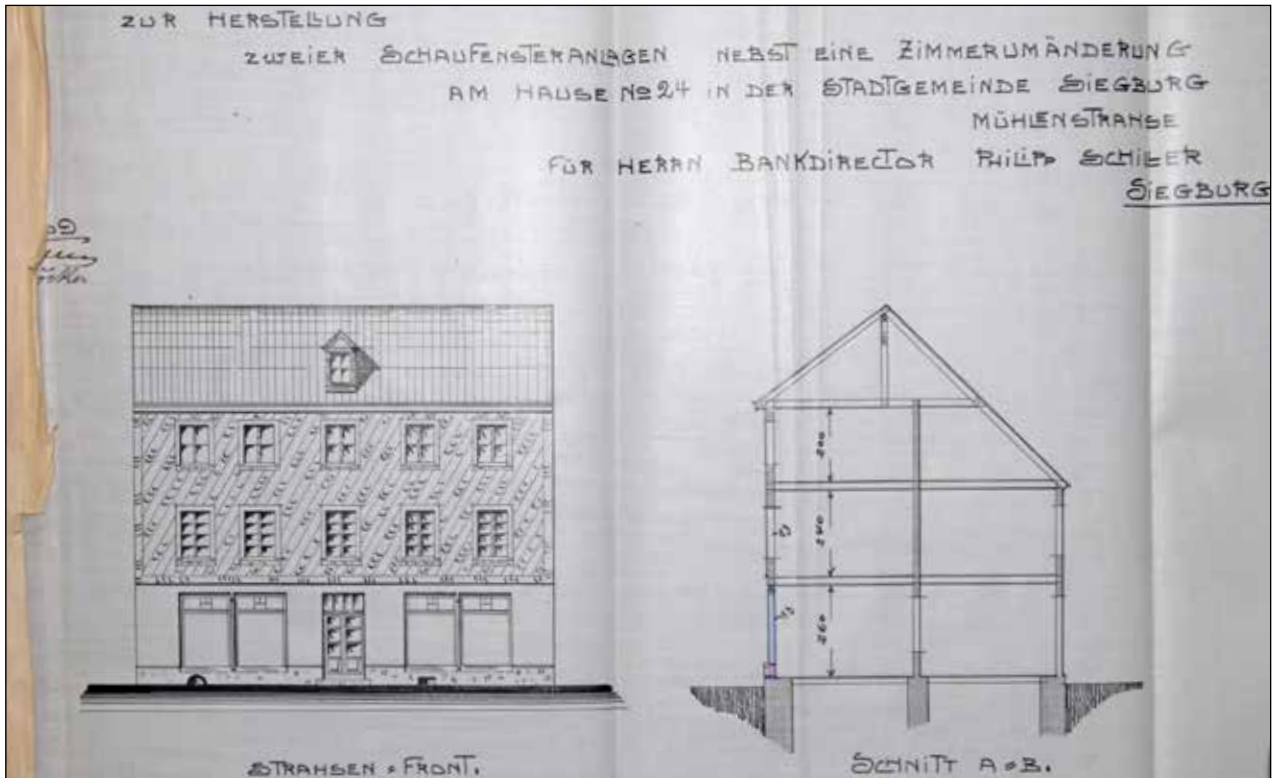 ZUR HERSTELLUNG
ZWEIER SCHAUFENSTERANLAGEN NEBST EINE ZIMMERUMÄNDERUNG
AM HAUSE No 24 IN DER STADTGEMEINDE SIEGBURG
MÜHLENSTRAHSE
FÜR HERRN BANKDIRECTOR PHILIPP SCHILER
SIEGBURG
200
240
260
STRAHSEN = FRONT.
SCHNITT A = B.